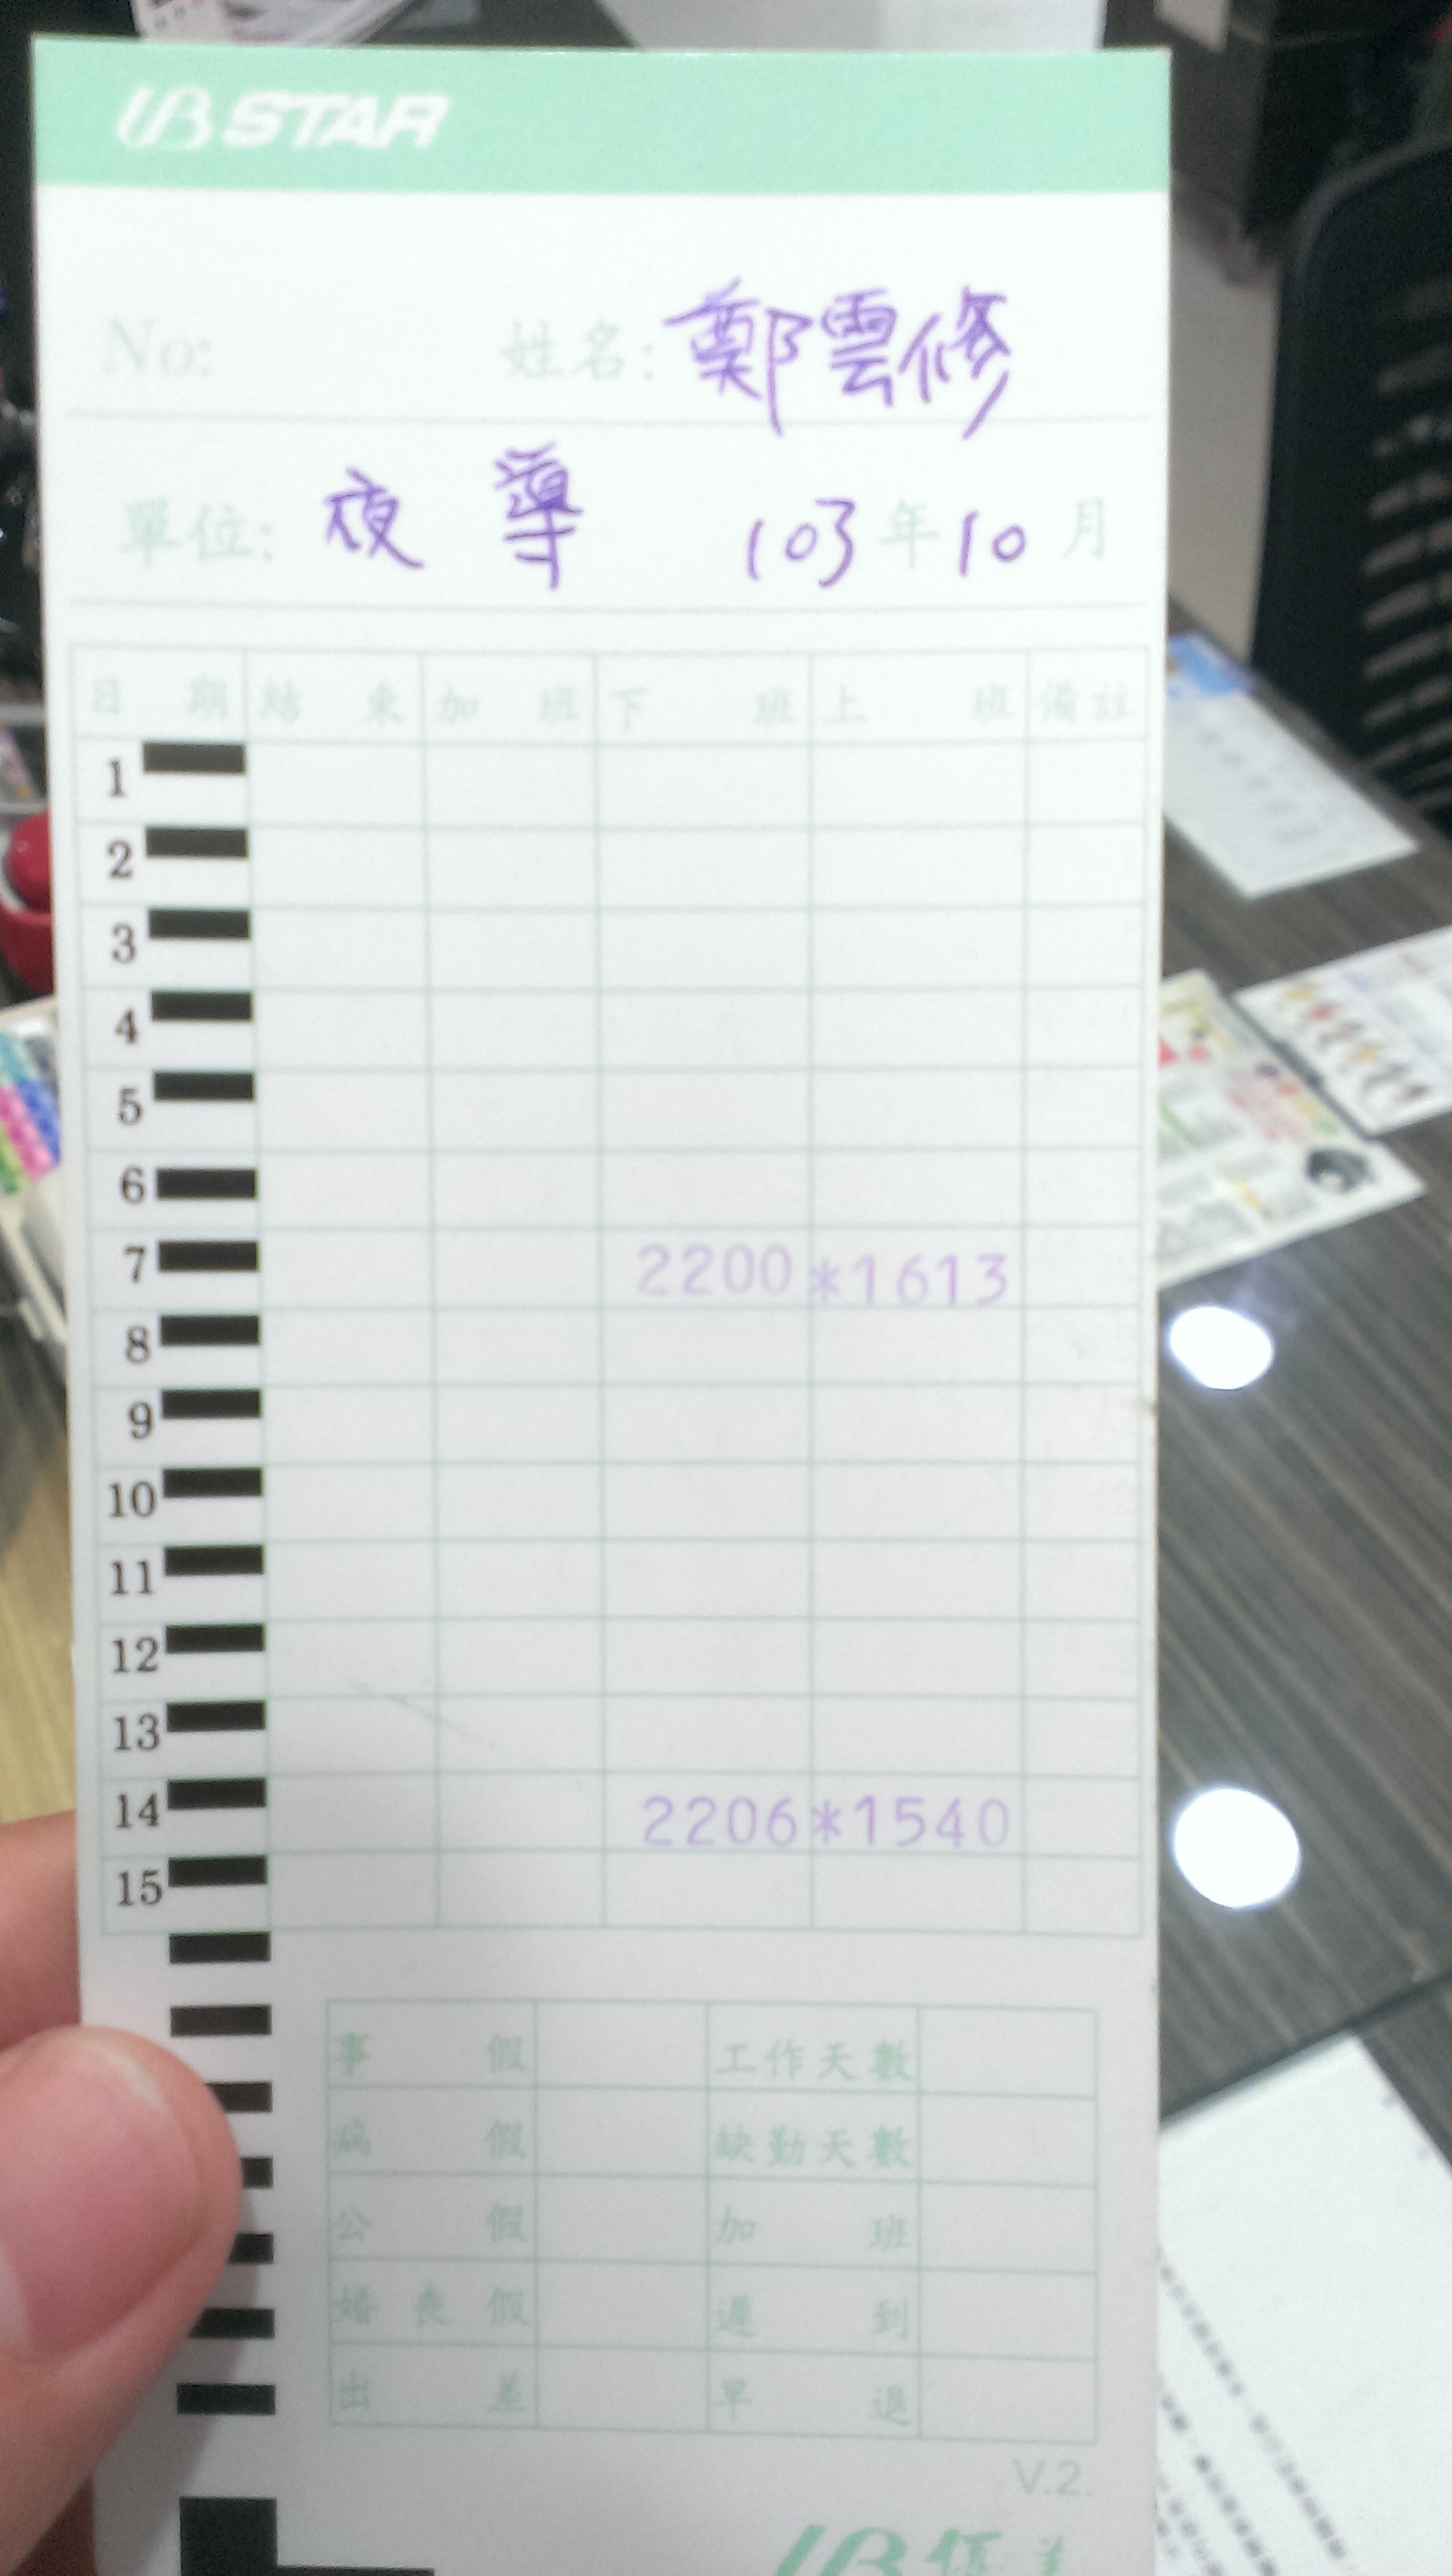 UB STAR
No: 姓名: 鄭雲修
單位: 夜 導 103 年 10 月
日期 結束 加班 下班 上班 備註
1
2
3
4
5
6
7 2200 *1613
8
9
10
11
12
13
14 2206 *1540
15
事假 工作天數
病假 缺勤天數
公假 加班
婚喪假 遲到
出差 早退
V.2.
UB 優美